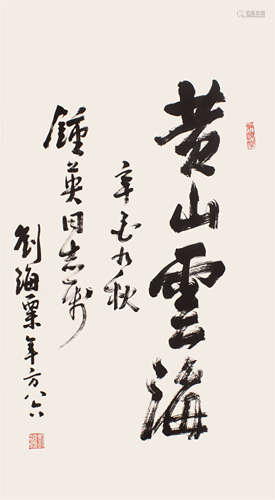 黄山雲海
辛酉九秋
鍾英同志屬
劉海粟年方八六